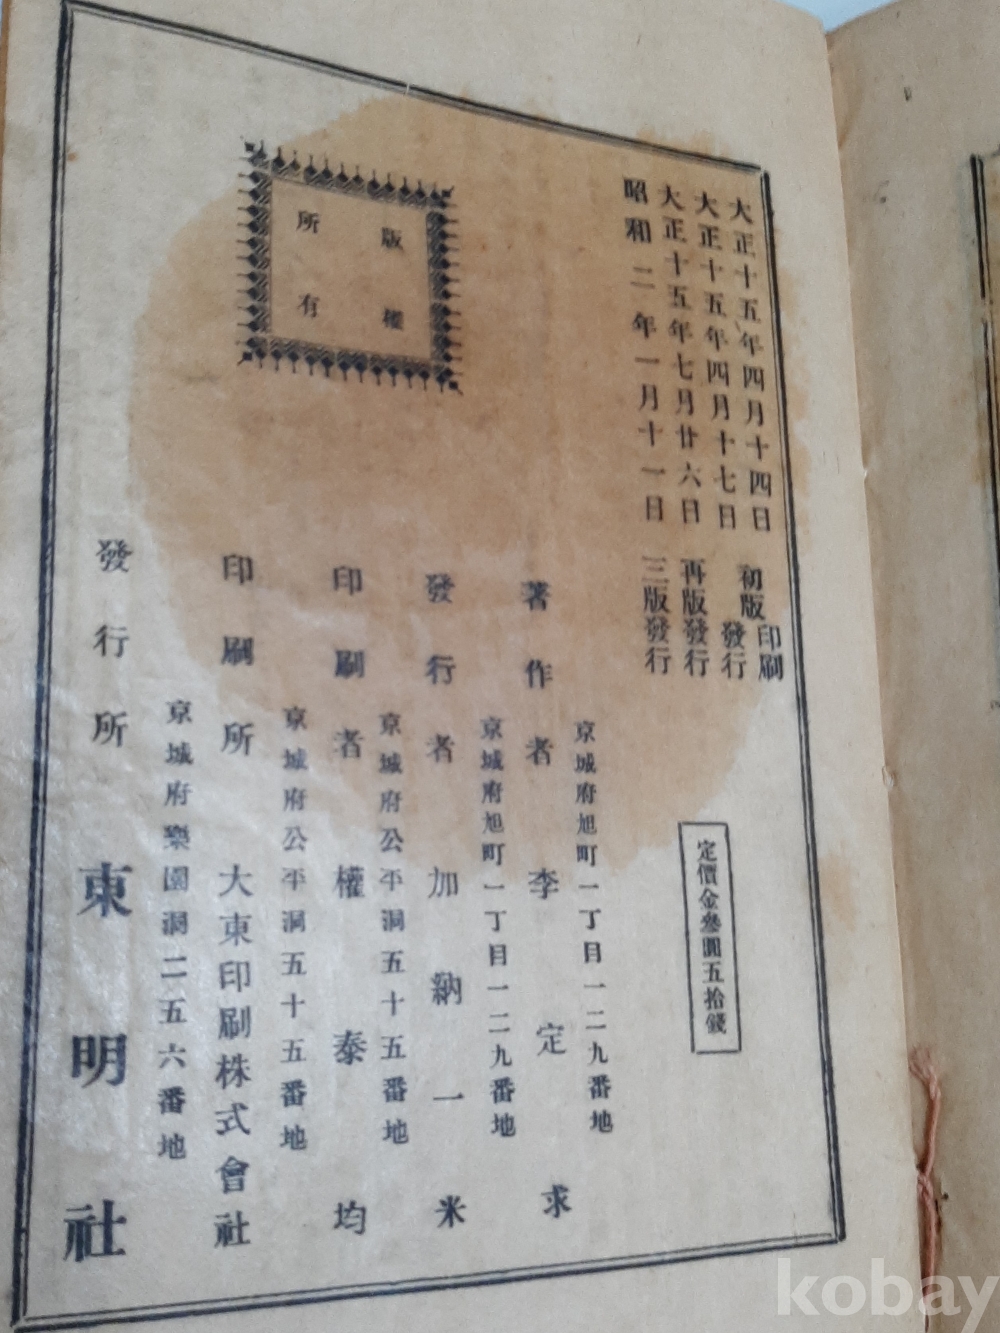 大正十五年四月十四日 初版印刷
大正十五年四月十七日 發行
大正十五年七月廿六日 再版發行
昭和二年一月十一日 三版發行
版權
所有
定價金參圓五拾錢
京城府旭町一丁目一二九番地
著作者 李定求
京城府旭町一丁目一二九番地
發行者 加納一米
京城府公平洞五十五番地
印刷者 權泰均
京城府公平洞五十五番地
印刷所 大東印刷株式會社
京城府樂園洞二五六番地
發行所 東明社
kobay